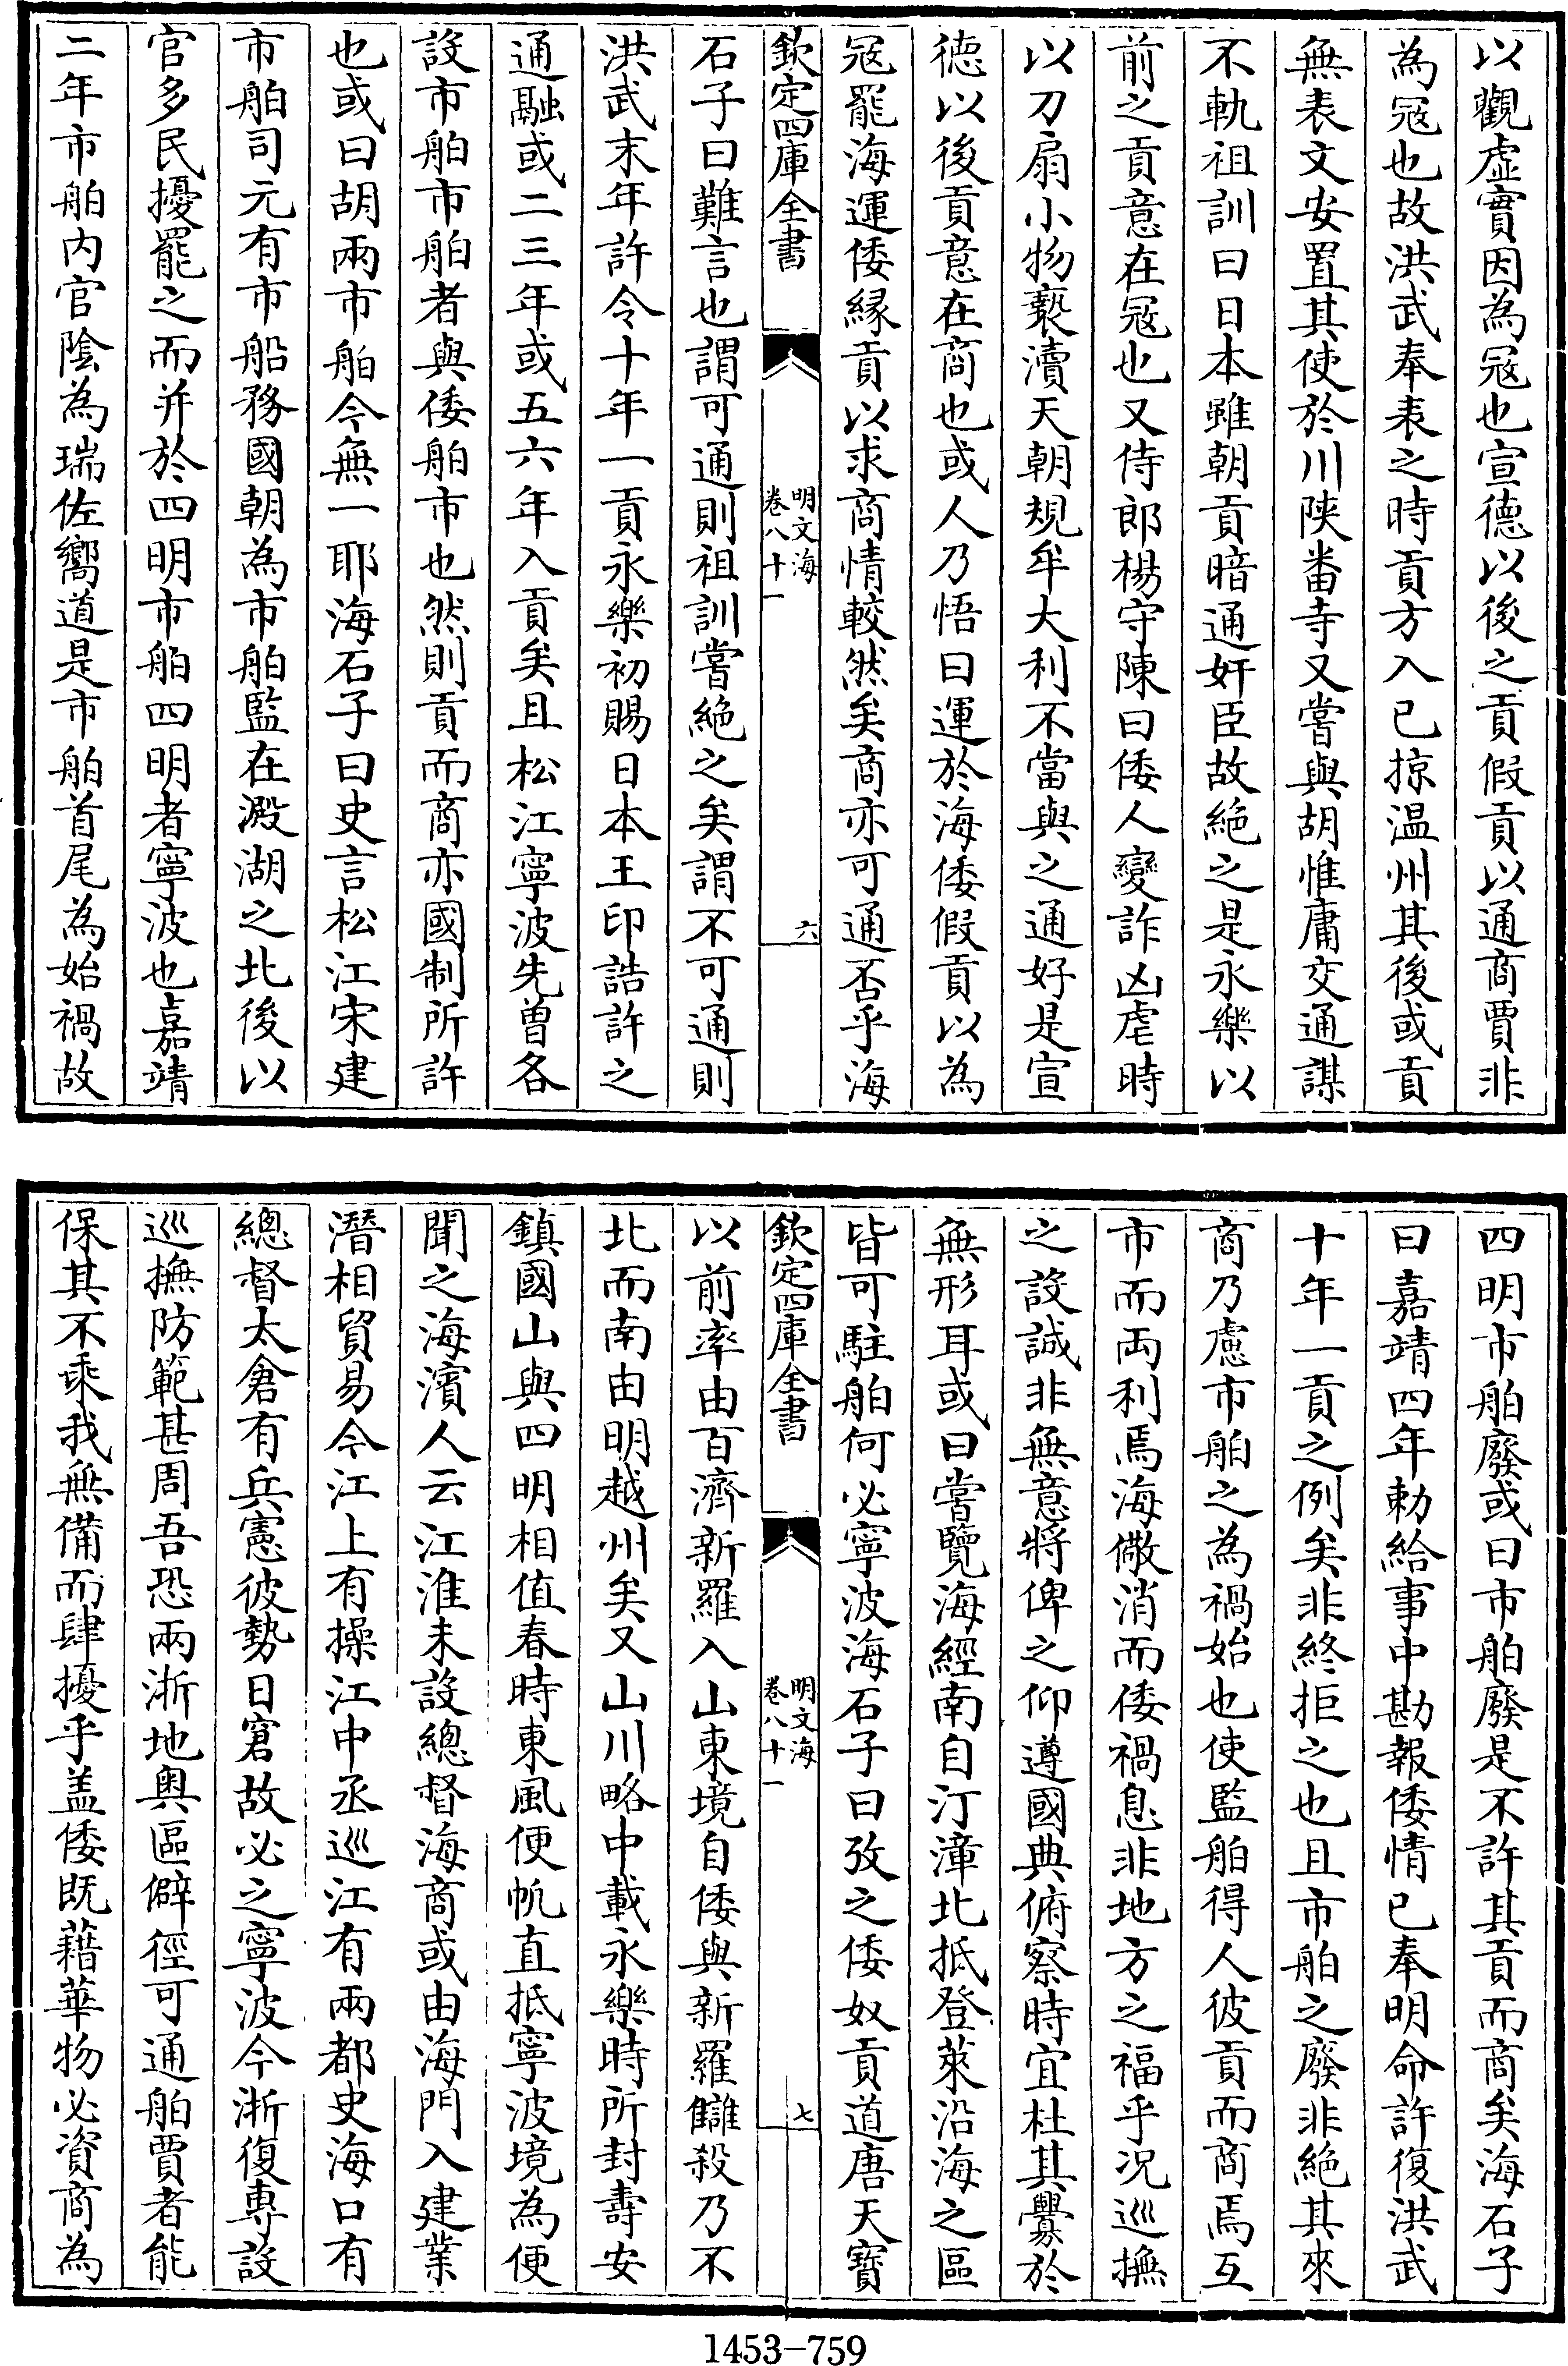 以觀虚實因為冦也宣德以後之貢假貢以通商賈非
為冦也故洪武奉表之時貢方入已掠温州其後或貢
無表文安置其使於川陜畨寺又嘗與胡惟庸交通謀
不軌祖訓曰日本雖朝貢暗通奸臣故絶之是永樂以
前之貢意在冦也又侍郎楊守陳曰倭人變詐凶虐時
以刀扇小物褻瀆天朝規牟大利不當與之通好是宣
徳以後貢意在商也或人乃悟曰運於海倭假貢以為
冦罷海運倭縁貢以求商情較然矣商亦可通否乎海
欽定四庫全書
明文海
卷八十一
六
石子曰難言也謂可通則祖訓嘗絶之矣謂不可通則
洪武末年許令十年一貢永樂初賜日本王印誥許之
通融或二三年或五六年入貢矣且松江寧波先曽各
設市舶市舶者與倭舶市也然則貢而商亦國制所許
也或曰胡兩市舶今無一耶海石子曰史言松江宋建
市舶司元有市船務國朝為市舶監在澱湖之北後以
官多民擾罷之而并於四明市舶四明者寧波也嘉靖
二年市舶内官隂為瑞佐嚮道是市舶首尾為始禍故
四明市舶廢或曰市舶廢是不許其貢而商矣海石子
曰嘉靖四年勅給事中勘報倭情已奉明命許復洪武
十年一貢之例矣非終拒之也且市舶之廢非絶其來
商乃慮市舶之為禍始也使監舶得人彼貢而商焉互
市而両利焉海儆消而倭禍息非地方之福乎况巡撫
之設誠非無意將俾之仰遵國典俯察時宜杜其釁於
無形耳或曰嘗覽海經南自汀漳北抵登萊沿海之區
皆可駐舶何必寧波海石子曰攷之倭奴貢道唐天寶
欽定四庫全書
明文海
卷八十一
七
以前率由百濟新羅入山東境自倭與新羅讎殺乃不
北而南由明越州矣又山川略中載永樂時所封壽安
鎮國山與四明相值春時東風便帆直抵寧波境為便
聞之海濱人云江淮未設總督海商或由海門入建業
潛相貿易今江上有操江中丞巡江有兩都史海口有
總督太倉有兵憲彼勢日窘故必之寧波今浙復専設
巡撫防範甚周吾恐兩浙地奥區僻徑可通舶賈者能
保其不乘我無備而肆擾乎盖倭既藉華物必資商為
1453-759